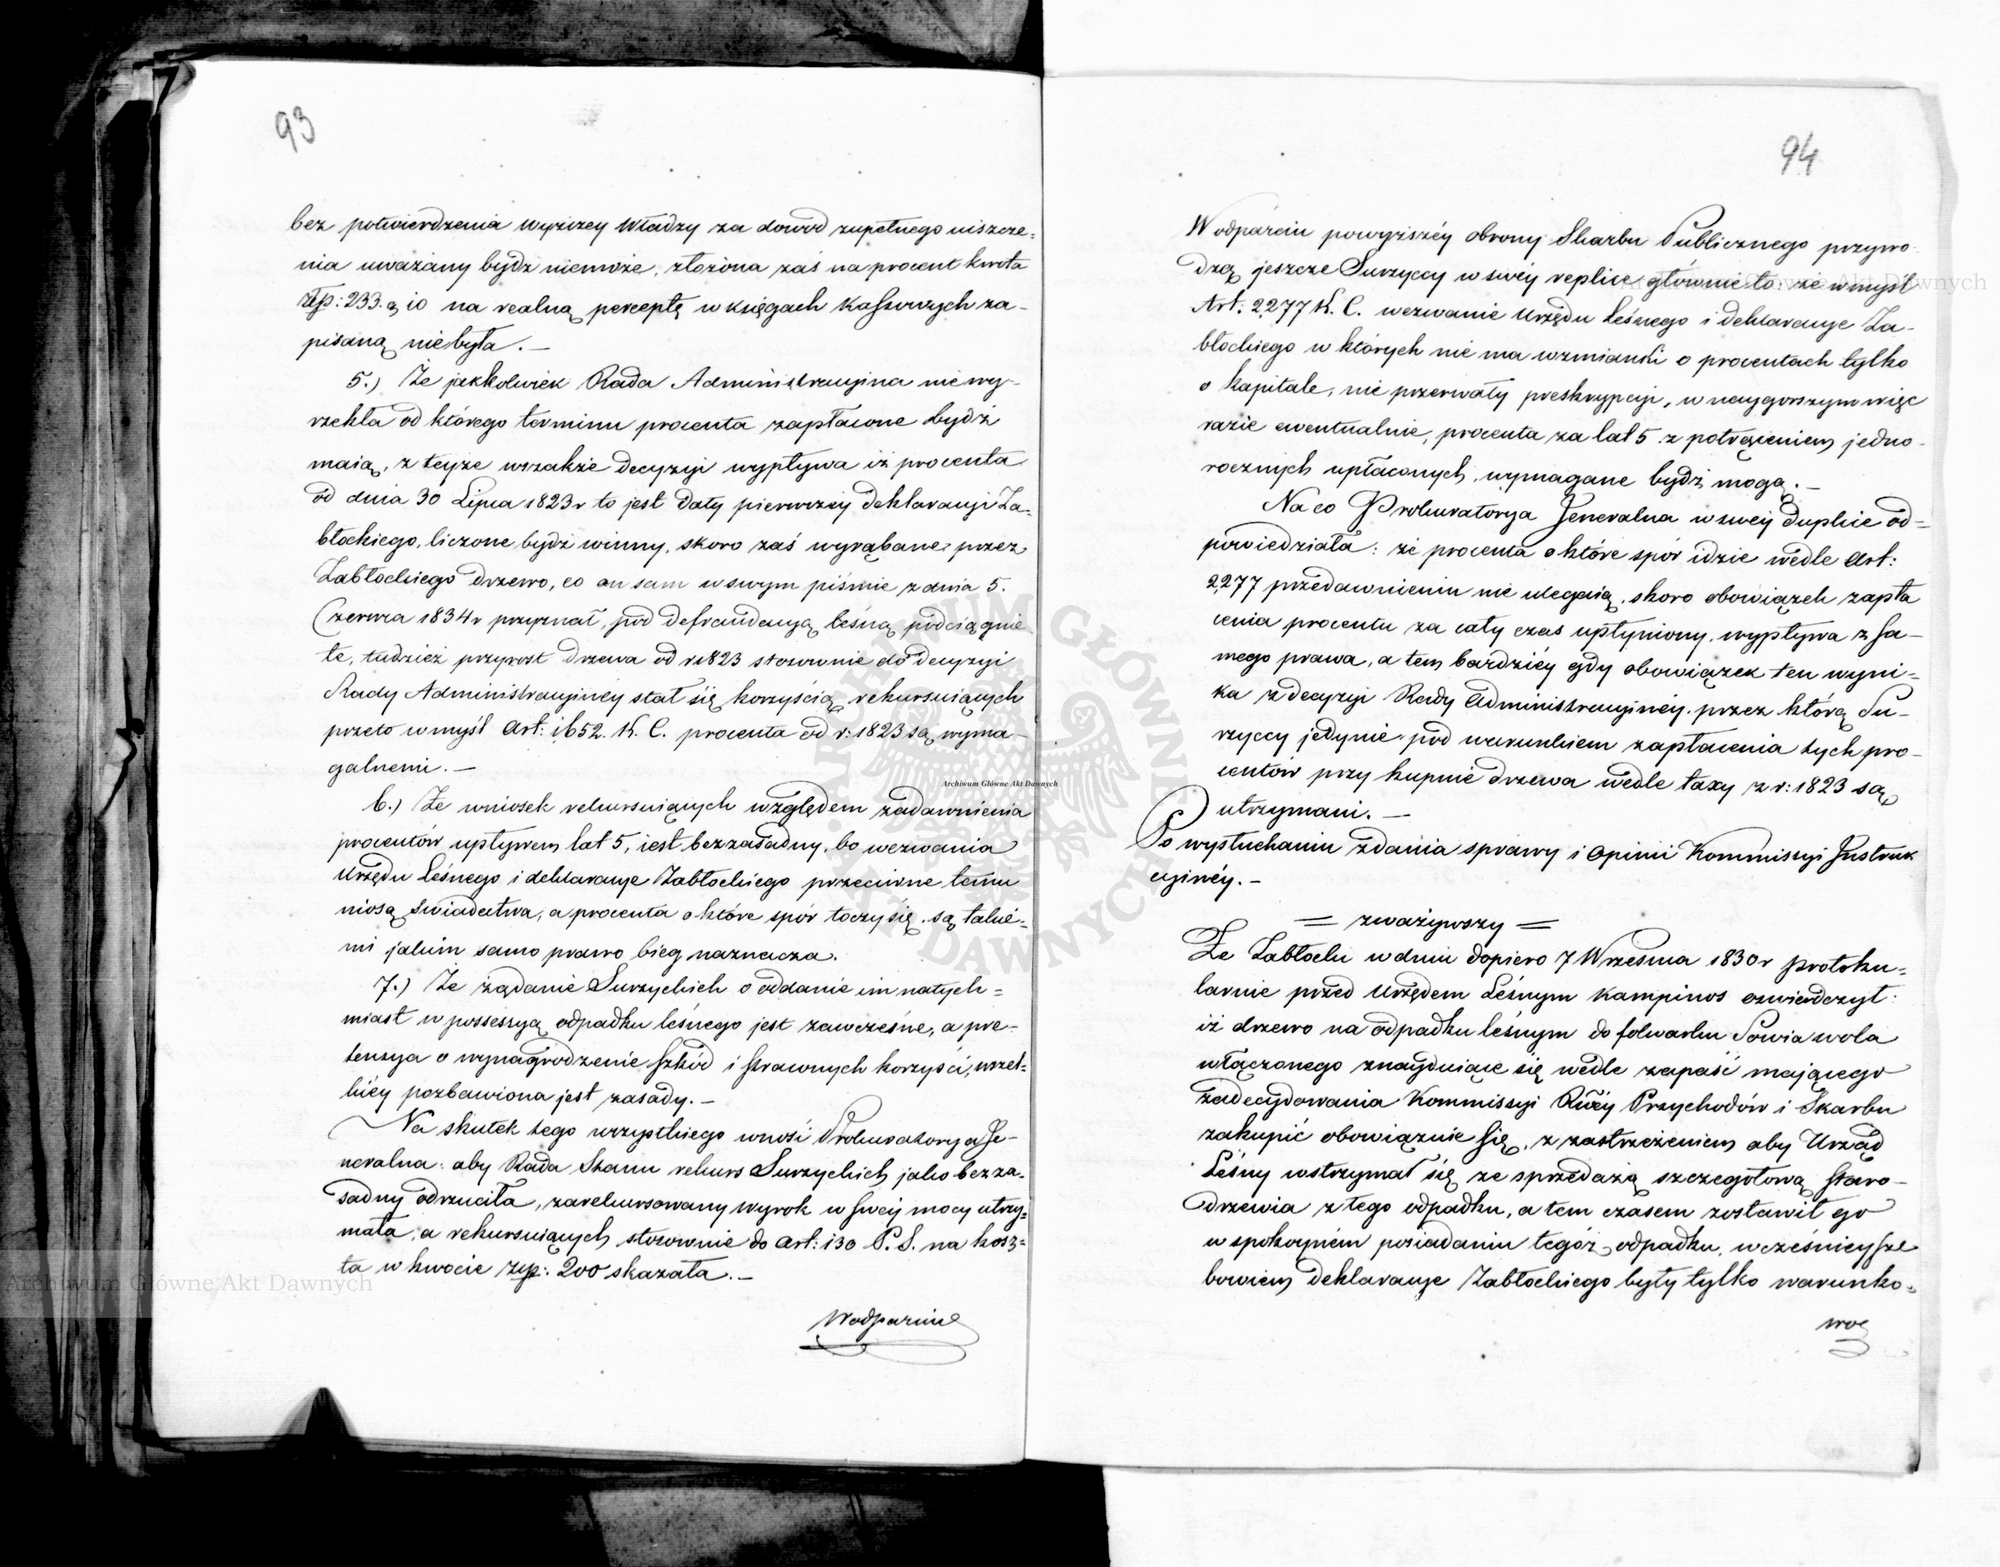 93
bez potwierdzenia wyższey Władzy za dowód zupełnego uiszcze=
nia uważany bydź niemoże, złożona zaś na procent kwota
złp: 233. g 10 na realną perceptę w księgach kassowych za-
pisaną niebyła. –
5.) Że jakkolwiek Rada Administracyjna nie wy-
rzekła od którego terminu procenta zapłacone bydź
maią, z teyże wszakże decyzyi wypływa iż procenta
od dnia 30 Lipca 1823 r to jest daty pierwszéy deklaracyi Za-
błockiego, liczone bydź winny, skoro zaś wyrąbane przez
Zabłockiego drzewo, co on sam w swym piśmie z dnia 5.
Czerwca 1834 r przyznał, pod defraudacyą leśną podciągnię-
te, tudzież przyrost drzewa od r 1823 stosownie do decyzyi
Rady Administracyjney stał się korzyścią rekursuiących
przeto w myśl Art: 1652. K. C. procenta od r: 1823 są wyma-
galnemi. –
6.) Że wniosek rekursuiących względem zadawnienia
procentów upływem lat 5, iest bezzasadny, bo wezwania
Urzędu Leśnego i deklaracye Zabłockiego przeciwne temu
niosą świadectwa, a procenta o które spór toczy się są takie-
mi jakim samo prawo bieg naznacza.
7.) Że żądanie Surzyckich o oddanie im natych=
miast w possessyą odpadku leśnego jest zawczesne, a pre-
tensya o wynagrodzenie szkód i straconych korzyści, wszel-
kiéy pozbawiona jest zasady. –
Na skutek tego wszystkiego wnosi Prokuratorya Je-
neralna: aby Rada Stanu rekurs Surzyckich jako bezza-
sadny odrzuciła, zarekursowany wyrok w swéy mocy utrzy=
mała, a rekursuiących stosownie do Art: 130 P. S. na kosz=
ta w kwocie złp: 200 skazała. –
W odparciu
94
W odparciu powyższéy obrony Skarbu Publicznego przywo-
dzą jeszcze Surzyccy w swéy replice głównie to: że w myśl
Art: 2277 K. C. wezwanie Urzędu Leśnego i deklaracye Za-
błockiego w których nie ma wzmianki o procentach tylko
o kapitale, nie przerwały preskrypcyi, w naygorszym więc
razie ewentualnie, procenta za lat 5 z potrąceniem jedno-
rocznych upłaconych, wymagane bydź mogą. –
Na co Prokuratorya Jeneralna w swéy duplice od=
powiedziała: że procenta o które spór idzie wedle Art:
2277 przedawnieniu nie ulegaią, skoro obowiązek zapła
cenia procentu za cały czas upłyniony, wypływa z sa-
mego prawa, a tem bardziéy gdy obowiązek ten wyni=
ka z decyzyi Rady Administracyjnéy, przez którą Su-
rzyccy jedynie pod warunkiem zapłacenia tych pro-
centów przy kupnie drzewa wedle taxy z r: 1823 są
utrzymani. –
Po wysłuchaniu zdania sprawy i opinii Kommissyi Instruk
cyinéy. –
= zważywszy =
Że Zabłocki w dniu dopiero 7 Września 1830 r protoku=
larnie przed Urzędem Leśnym Kampinos oświadczył:
iż drzewo na odpadku leśnym do folwarku Sowia wola
włączonego znayduiące się wedle zapaść mającego
zadecydowania Kommissyi Rźéy Przychodów i Skarbu
zakupić obowiązuie się, z zastrzeżeniem aby Urząd
Leśny wstrzymał się ze sprzedażą szczegółową staro-
drzewia z tego odpadku, a tem czasem zostawił go
w spokoynem posiadaniu tegóż odpadku, wcześnieysze
bowiem deklaracye Zabłockiego były tylko warunko=
we
Archiwum Główne Akt Dawnych